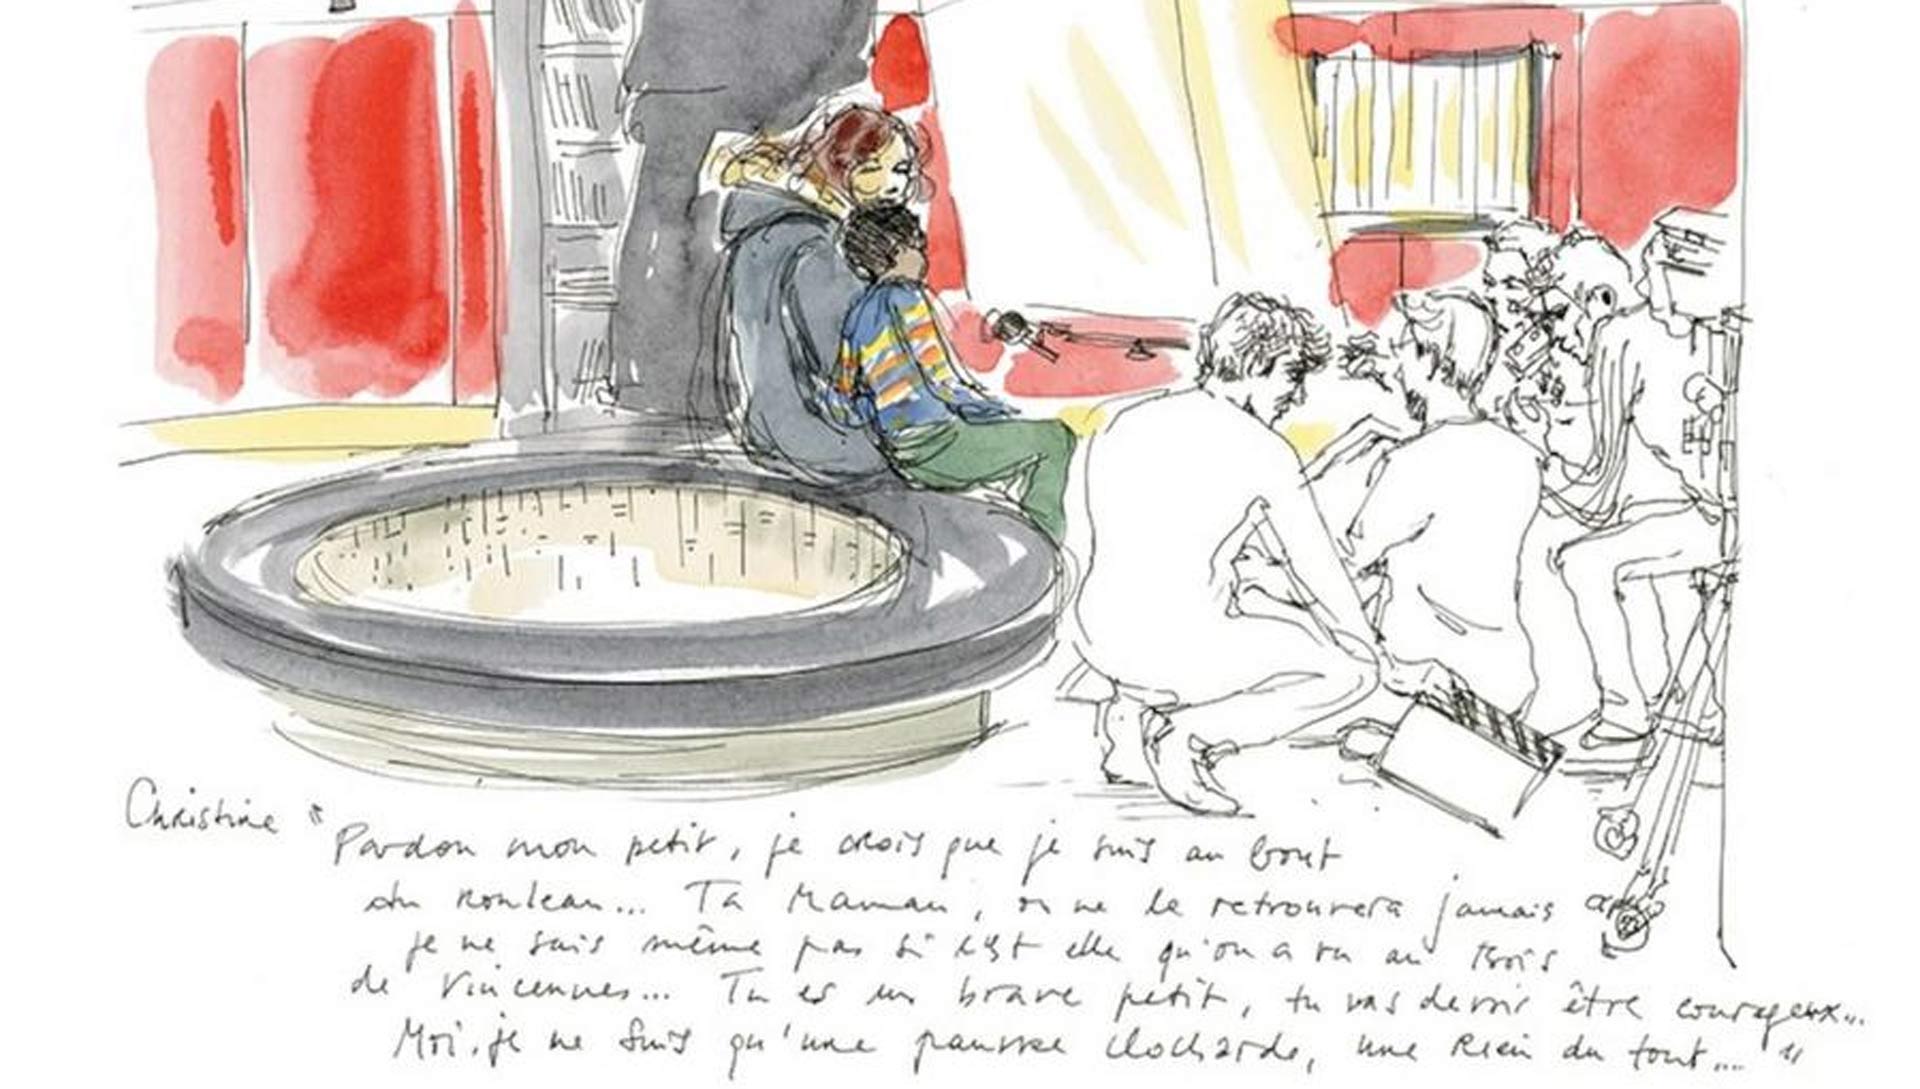 Christine " Pardon mon petit, je crois que je suis au bout
du rouleau... Ta Maman, on ne la retrouvera jamais
je ne sais même pas si c'est elle qu'on a vu au Bois
de Vincennes... Tu es un brave petit, tu vas devoir être courageux...
Moi, je ne suis qu'une pauvre clocharde, une Rien du tout... "